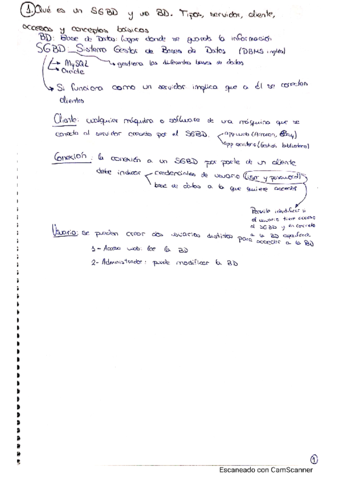 ① Qué es un SGBD y una BD. Tipos, servidor, cliente,
accesos y conceptos básicos
BD: Base de Datos: Lugar donde se guarda la información
SGBD Sistema Gestor de Bases de Datos (DBMS inglés)
MySQL
gestiona las diferentes bases de datos
Oracle
Si funciona como un servidor implica que a él se conectan
clientes
Cliente: cualquier máquina o software de una máquina que se
conecta al servidor creado por el SGBD.
app web (Amazon, Ebay)
app escritorio (Gestión biblioteca)
Conexión: la conexión a un SGBD por parte de un cliente
debe indicar
credenciales de usuario (user y password)
base de datos a la que quiere acceder
Permite identificar si
el usuario tiene acceso
al SGBD y en concreto
a la BD específica
Usuario: se pueden crear dos usuarios distintos para acceder a la BD
1- Acceso web: leer la BD
2- Administrador: puede modificar la BD
①
Escaneado con CamScanner